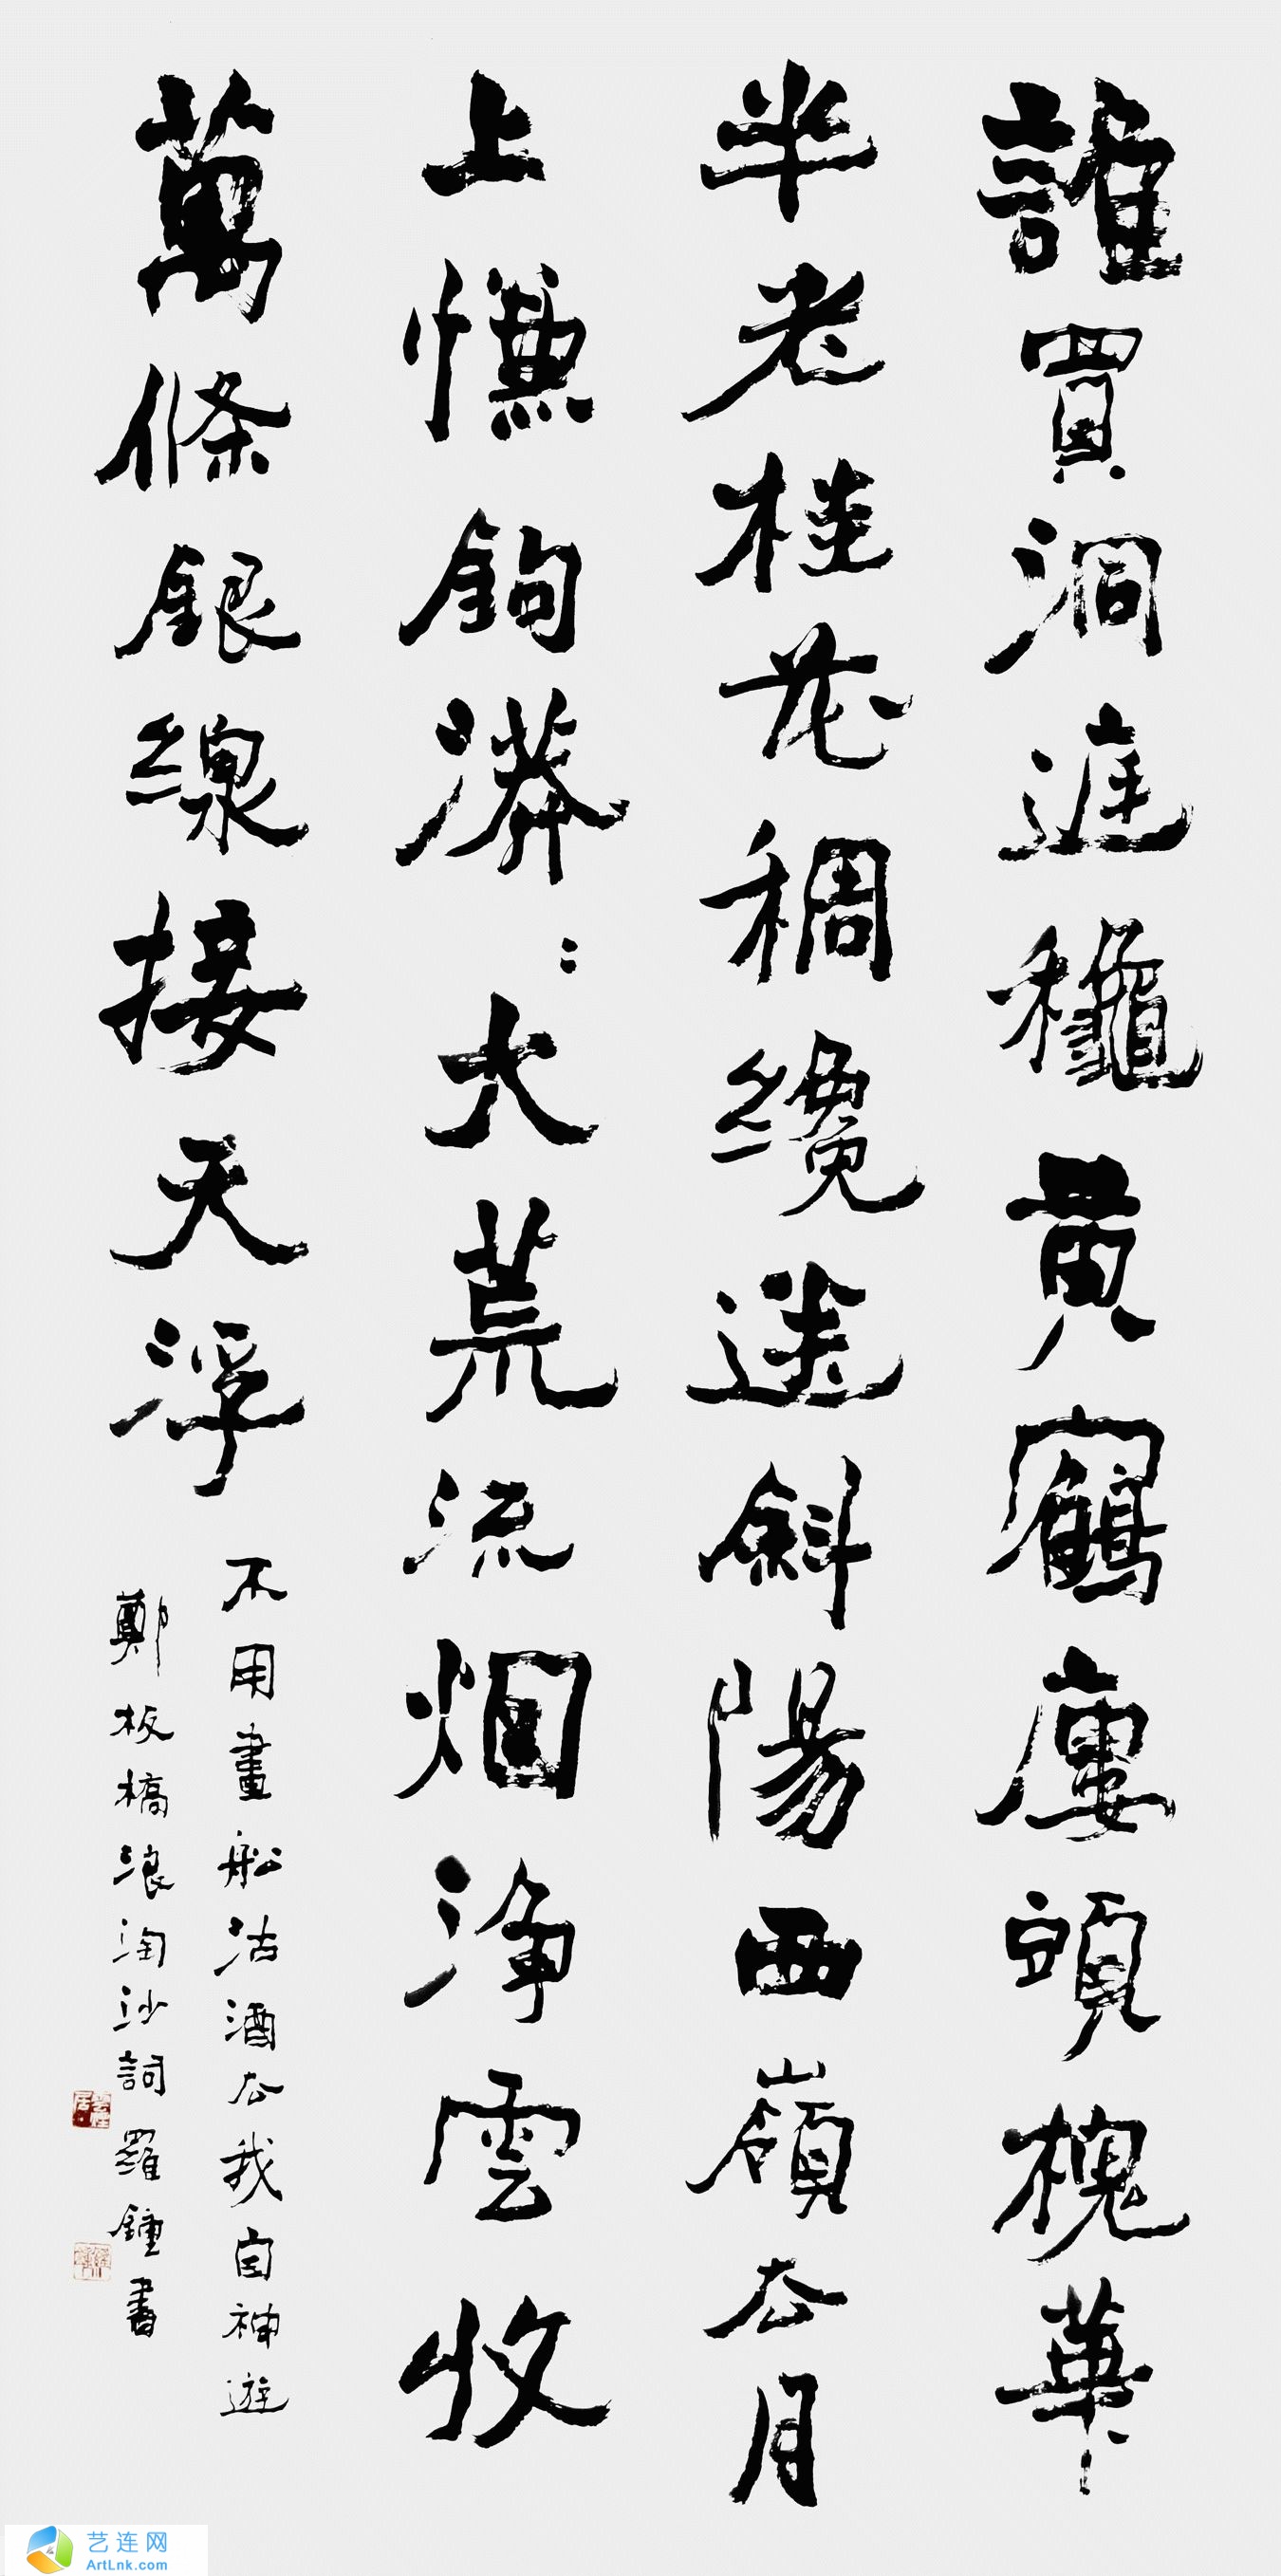 誰買洞庭龝黄鶴廔頭槐華
半老桂花稠纔送斜陽西嶺去月
上㡘鉤漭〻大荒流烟淨雲收
萬條銀線接天浮
不用畫船沽酒去我自神遊
鄭板橋浪淘沙詞羅鍾書
艺连网
ArtLnk.com